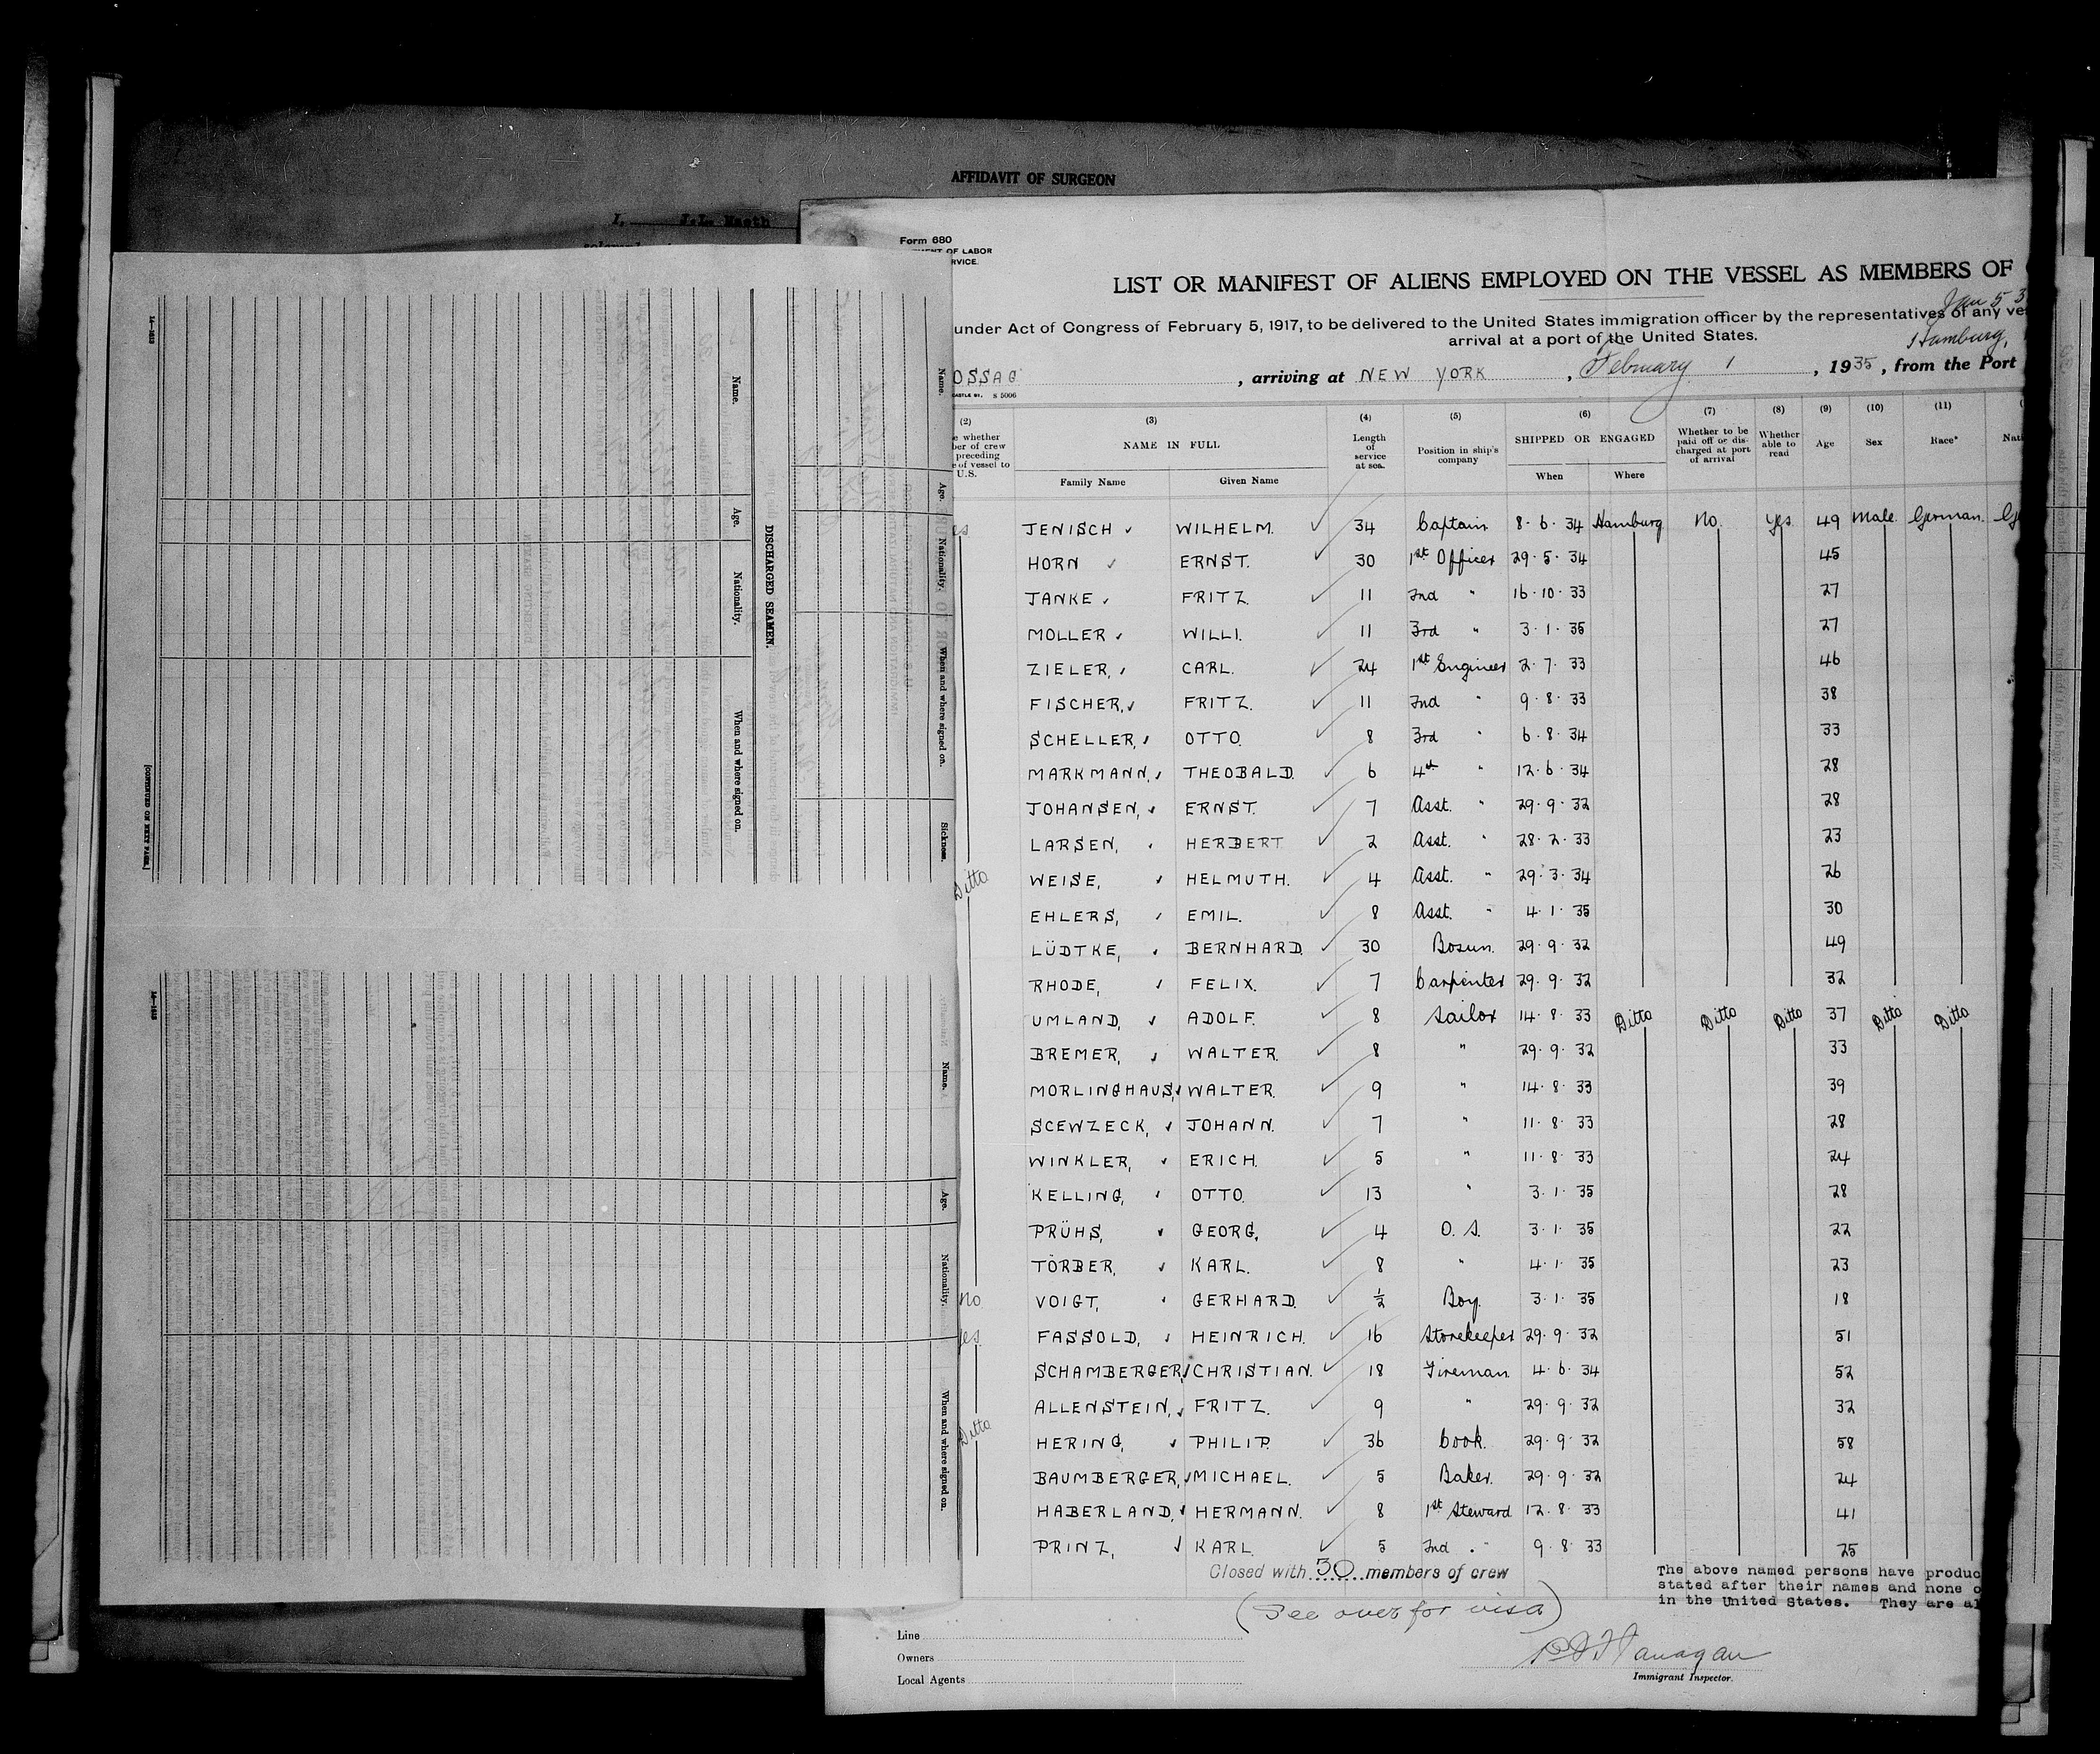 AFFIDAVIT OF SURGEON
I, J.L. Maeth
Form 680
OF LABOR
RVICE.
LIST OR MANIFEST OF ALIENS EMPLOYED ON THE VESSEL AS MEMBERS OF
Jan 5 3
under Act of Congress of February 5, 1917, to be delivered to the United States immigration officer by the representatives of any ves
arrival at a port of the United States.
Hamburg,
OSSAG, arriving at NEW YORK, February 1, 1935, from the Port
S 5006
(2) (3) (4) (5) (6) (7) (8) (9) (10) (11)
whether ber of crew preceding e of vessel to U.S.
NAME IN FULL
Family Name Given Name
Length of service at sea.
Position in ship's company
SHIPPED OR ENGAGED
When Where
Whether to be paid off or discharged at port of arrival
Whether able to read
Age Sex Race* Nati
JENISCH WILHELM. 34 Captain 8·6·34 Hamburg No. yes 49 Male German. Ge
HORN ERNST. 30 1st Officer 29·5·34 45
JANKE FRITZ. 11 2nd " 16·10·33 27
MOLLER WILLI. 11 3rd " 3·1·35 27
ZIELER, CARL. 24 1st Engineer 2·7·33 46
FISCHER, FRITZ. 11 2nd " 9·8·33 38
SCHELLER, OTTO. 8 3rd " 6·8·34 33
MARKMANN, THEOBALD. 6 4th " 12·6·34 28
JOHANSEN, ERNST. 7 Asst. " 29·9·32 28
LARSEN, HERBERT 2 Asst. " 28·2·33 23
Ditto WEISE, HELMUTH. 4 Asst. " 29·3·34 26
EHLERS, EMIL. 8 Asst. " 4·1·35 30
LÜDTKE, BERNHARD. 30 Bosun. 29·9·32 49
RHODE, FELIX. 7 Carpenter 29·9·32 32
UMLAND, ADOLF. 8 Sailor 14·8·33 Ditto Ditto Ditto 37 Ditto Ditto
BREMER, WALTER. 8 " 29·9·32 33
MORLINGHAUS, WALTER. 9 " 14·8·33 39
SCEWZECK, JOHANN. 7 " 11·8·33 28
WINKLER, ERICH. 5 " 11·8·33 24
KELLING, OTTO. 13 " 3·1·35 28
PRÜHS, GEORG, 4 O.S. 3·1·35 22
TÖRBER, KARL. 8 " 4·1·35 23
No VOIGT, GERHARD. ½ Boy. 3·1·35 18
yes FASSOLD, HEINRICH. 16 Storekeeper 29·9·32 51
SCHAMBERGER, CHRISTIAN. 18 Fireman 4·6·34 52
ALLENSTEIN, FRITZ. 9 " 29·9·32 32
Ditto HERING, PHILIP. 36 Cook. 29·9·32 58
BAUMBERGER, MICHAEL. 5 Baker. 29·9·32 24
HABERLAND, HERMANN. 8 1st Steward 12·8·33 41
PRINZ, KARL 5 2nd " 9·8·33 25
Closed with 30 members of crew
The above named persons have produc
stated after their names and none o
in the United States. They are al
(See over for visa)
Line
Owners
Local Agents
Flanagan
Immigrant Inspector.
Name. Age. Nationality. When and where signed on. Sickness.
DISCHARGED SEAMEN.
Name. Age. Nationality. When and where signed on.
[CONTINUED ON NEXT PAGE]
Name. Age. Nationality. When and where signed on.